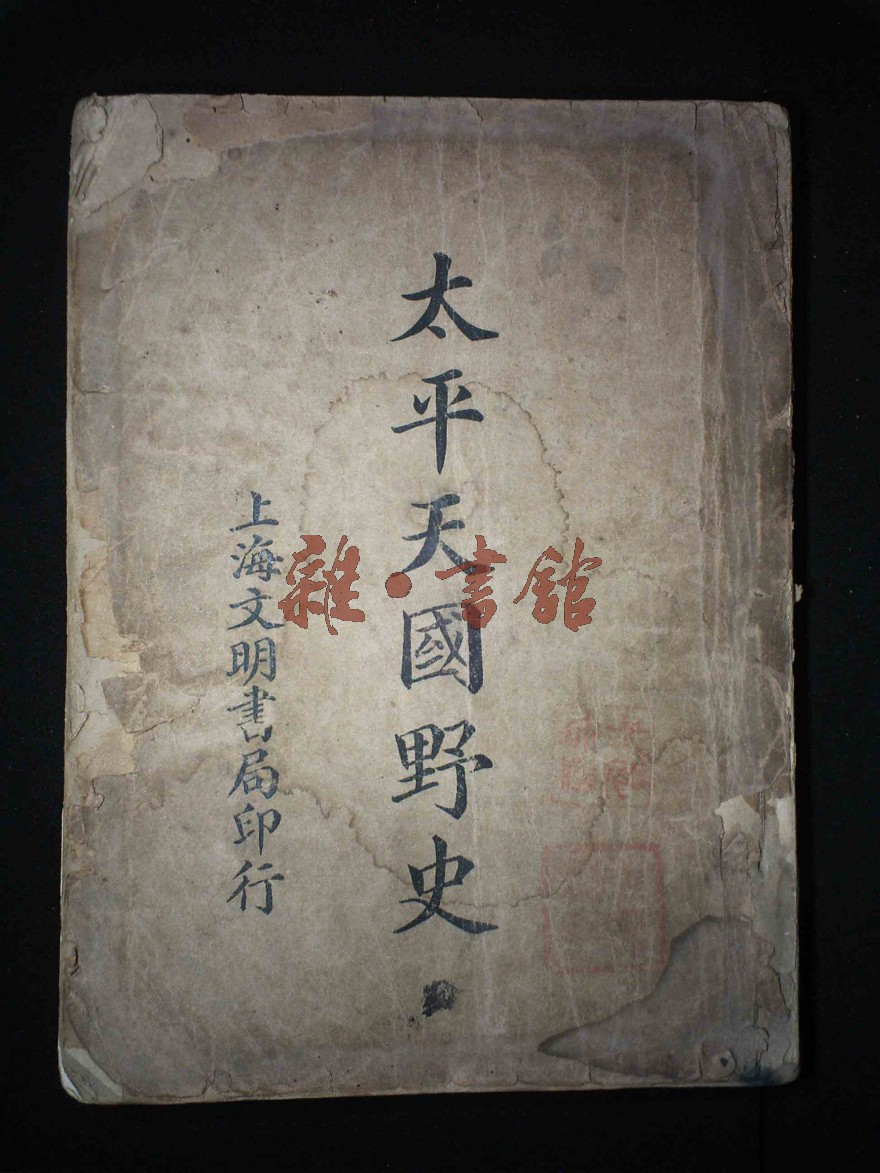 太平天國野史
上海文明書局印行
雜·書館